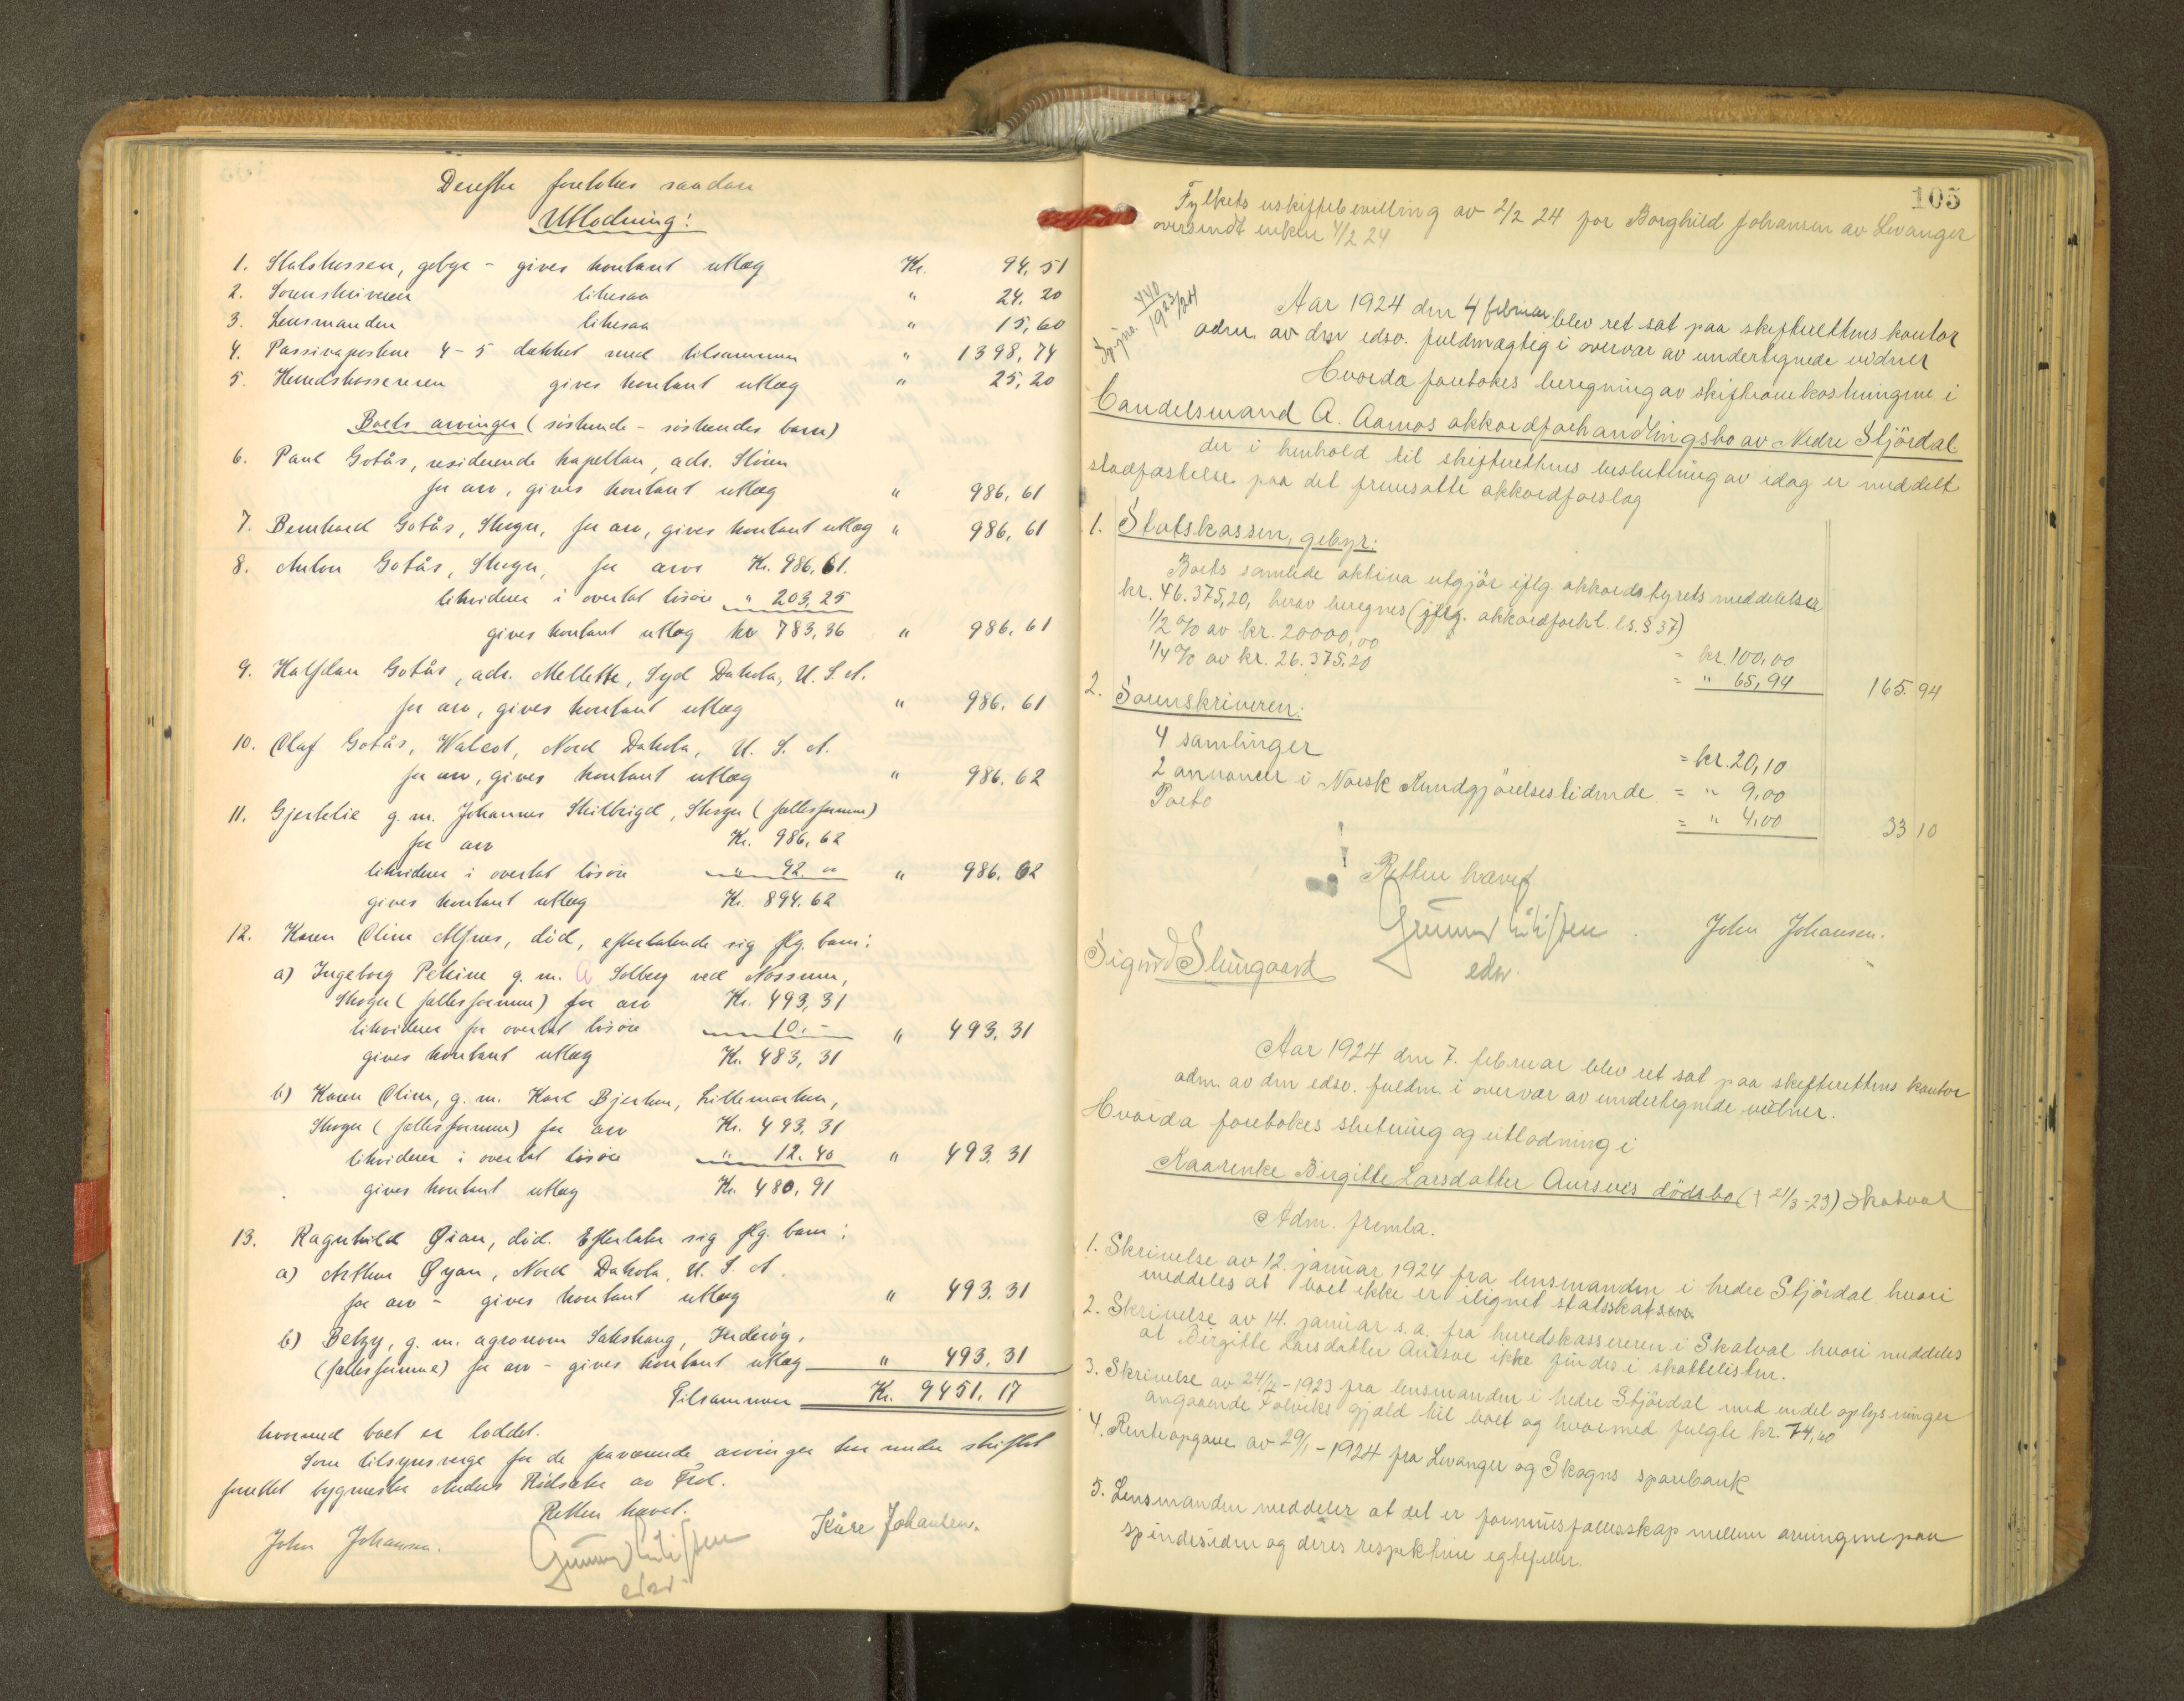 Derefter foretokes saadan
Utlodning:
1. Statskassen, gebyr - gives kontant utlæg Kr. 94,51
2. Sorenskriveren likesaa " 24,20
3. Lensmanden likesaa " 15,60
4. Passivaposterne 4-5 dækket med tilsammen " 1398,74
5. Herredskassereren gives kontant utlæg " 25,20
Boets arvinger (söskende - söskendes barn)
6. Paul Gotås, residerende kapellan, adr.
for arv, gives kontant utlæg " 986,61
7. Bernhard Gotås, Skogn, for arv, gives kontant utlæg " 986,61
8. Anton Gotås, Skogn, for arv Kr. 986,61.
likviderer i overtat lösöre " 203,25
gives kontant utlæg kr 783,36 " 986,61
9. Halfdan Gotås, adr. Mellette, Syd Dakota, U.S.A.
for arv, gives kontant utlæg " 986,61
10. Olaf Gotås, Walcot, Nord Dakota, U.S.A.
for arv, gives kontant utlæg " 986,62
11. Gjertelie g.m. Johannes Skilbrigd, Skogn (fællesformue)
for arv Kr. 986,62
likviderer i overtat lösöre " 92.00 " 986,62
gives kontant utlæg Kr. 894.62
12. Karen Oline Alfnes, död, efterlatende sig flg. barn:
a) Ingeborg Petrine g.m. A Solberg ved Nossum,
Skogn (fællesformue) for arv Kr. 493,31
likviderer for overtat lösöre " 10.- " 493,31
gives kontant utlæg Kr. 483,31
b) Karen Oline, g.m. Karl Bjerken, Lillemarken,
Skogn (fællesformue) for arv Kr. 493,31
likviderer i overtat lösöre " 12.40 " 493.31
gives kontant utlæg Kr. 480,91
13. Ragnhild Øian, död. Efterlater sig flg. barn:
a) Arthur Øyan, Nord Dakota, U.S.A.
for arv - gives kontant utlæg " 493.31
b) Betzy, g.m. agronom Sakshaug, Inderöy,
(fællesformue) for arv - gives kontant utlæg " 493,31
Tilsammen Kr. 9451,17
hvormed boet er loddet.
Som tilsynsverge for de fraværende arvinger har under skiftet
fungert bygmester Anders of Frol.
Retten hævet.
John Johansen. Kåre Johansen.
edsv.
105
Fylkets uskiftebevilling av 2/2 24 for Borghild Johansen av Levanger
oversendt enken 4/2 24
Spjno. 440 1923/24
Aar 1924 den 4 februar blev ret sat paa skifterettens kontor
adm. av den edsv. fuldmægtig i overvær av undertegnede vidner
Hvorda foretokes beregning av skifteomkostningene i
Handelsmand A. Aamos akkordforhandlingsbo av Nedre Stjördal
der i henhold til skifterettens beslutning av idag er meddelt
stadfæstelse paa det fremsatte akkordforslag
1. Statskassen, gebyr:
Boets samlede aktiva utgjör iflg. akkordstyrets meddelelse
kr. 46.375,20, herav beregnes (jfrg. akkordforhl. ls. § 37)
1/2 % av kr. 20000,00 = kr. 100,00
1/4 % av kr. 26.375,20 = " 65,94 165.94
2. Sorenskriveren:
4 samlinger = kr. 20,10
2 annoncer i Norsk Kundgjörelsestidende = " 9,00
Porto = " 4,00 33 10
Retten hævet
John Johansen.
Sigurd Slungaard edsv.
Aar 1924 den 7. februar blev ret sat paa skifterettens kontor
adm. av den edsv. fuldm. i overvær av undertegnede vidner.
Hvorda foretokes slutning og utlodning i
Kaarenke Birgitte Larsdatter Aursves dödsbo (+ 21/3-23) Skatval
Adm. fremla.
1. Skrivelse av 12. januar 1924 fra lensmanden i nedre Stjördal hvori
meddeles at boet ikke er ilignet statsskat
2. Skrivelse av 14. januar s.a. fra herredskassereren i Skatval hvori meddeles
at Birgitte Larsdatter Aursve ikke findes i skattelisten.
3. Skrivelse av -1923 fra lensmanden i nedre Stjördal med endel oplysninger
angaaende Folviks gjæld til boet og hvormed fulgte kr. 74,60
4. Renteopgave av 29/1-1924 fra Levanger og Skogns sparebank
5. Lensmanden meddeler at det er formuesfællesskap mellem arvingene paa
spindesiden og deres respektive egtefeller.